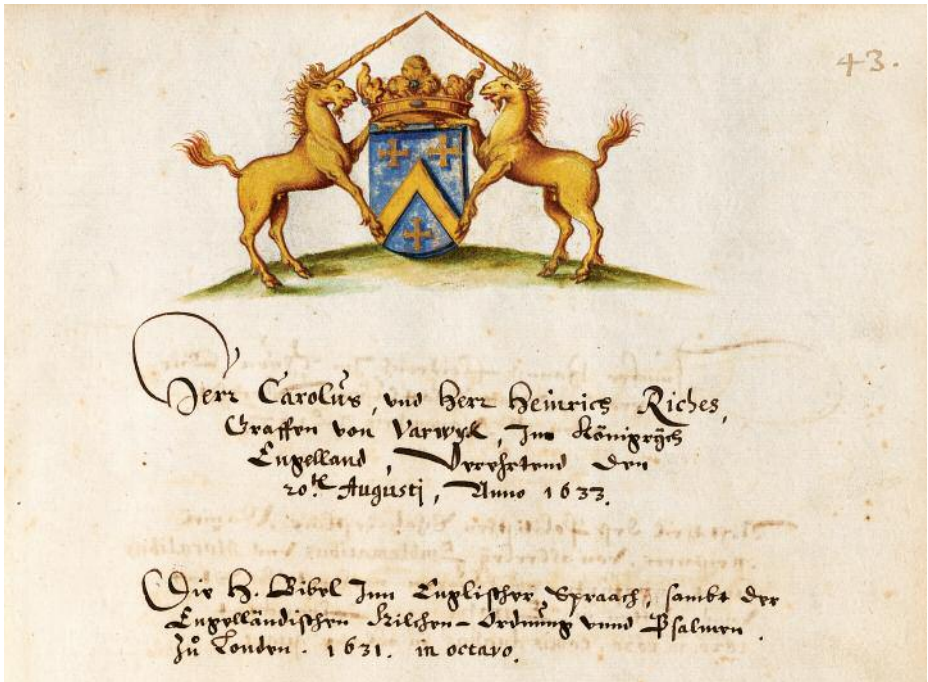 43.
Herr Carolus, und Herr Heinrich Riches,
Graffen von Varwyk, Im Königrÿch
Engelland, Verehrtend den
20.ᵗᵉ Augusti, Anno 1633.
Die H. Bibel Inn Englischer Spraach, sambt der
Engelländischen Kilchen-Ordnung unnd Psalmen.
Zů Londen. 1631. in octavo.